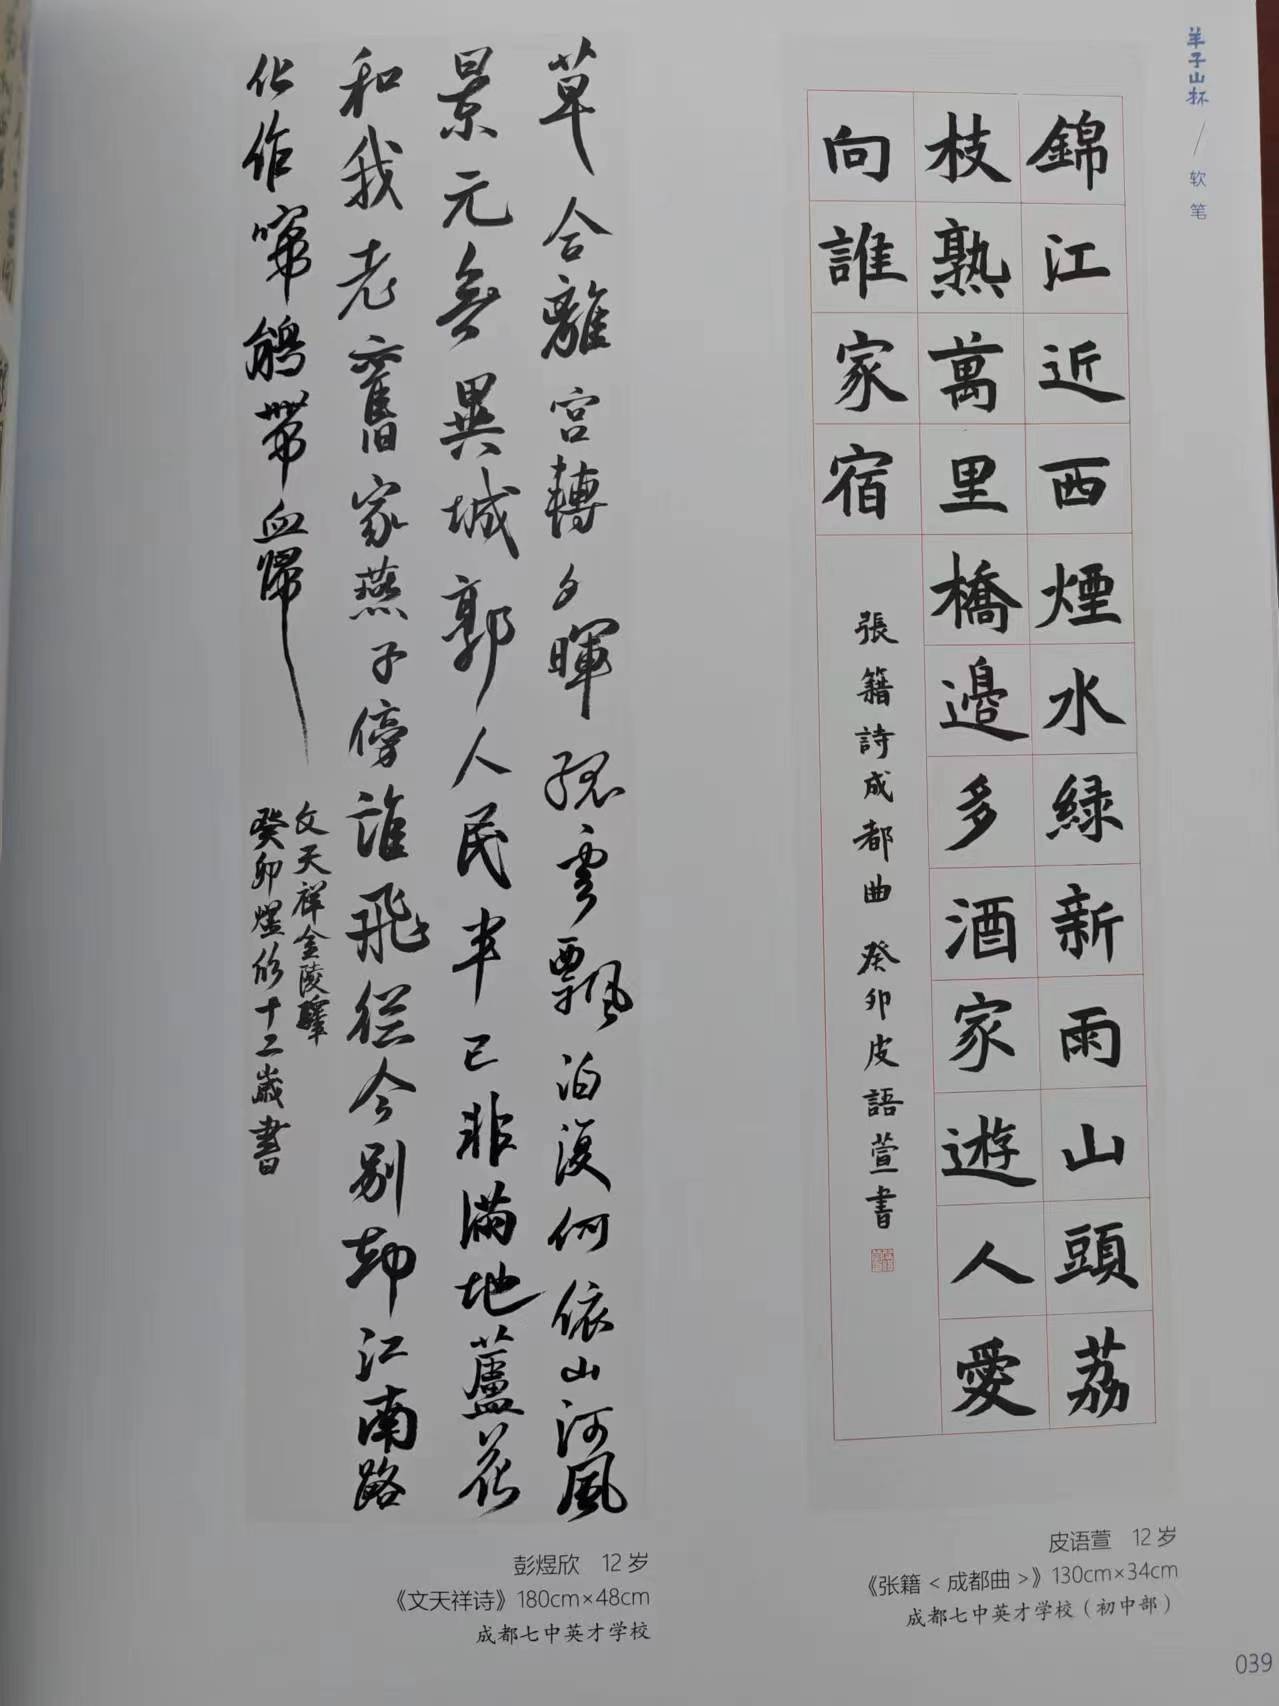 羊子山杯/软笔
錦江近西煙水緑新雨山頭荔
枝熟萬里橋邊多酒家遊人愛
向誰家宿
張籍詩成都曲 癸卯皮語萱書
皮语萱 12岁
《张籍<成都曲>》130cm×34cm
成都七中英才学校(初中部)
草合離宮轉夕暉孤雲飄泊復何依山河風
景元無異城郭人民半已非滿地蘆花
和我老舊家燕子傍誰飛從今别却江南路
化作啼鵑帶血歸
文天祥金陵驛
癸卯煜欣十二歲書
彭煜欣 12岁
《文天祥诗》180cm×48cm
成都七中英才学校
039